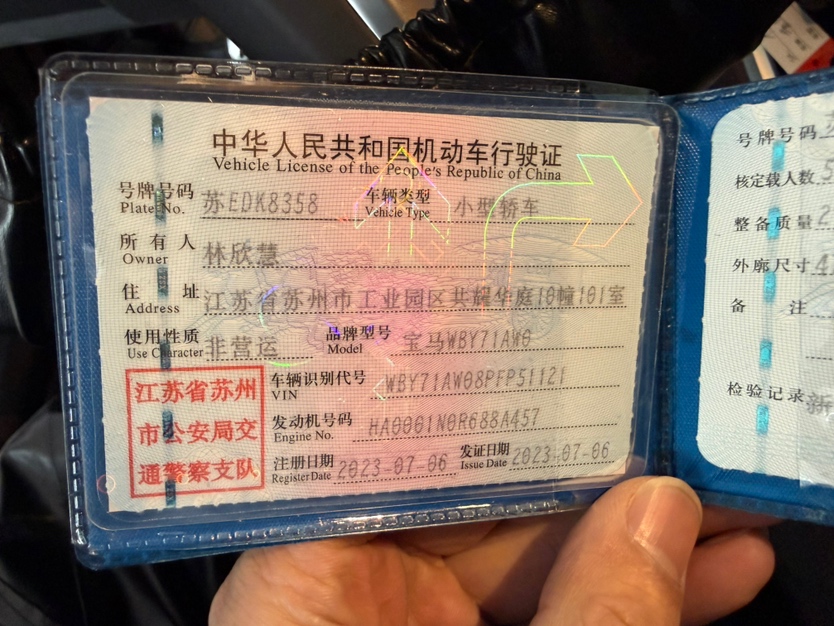 中华人民共和国机动车行驶证
Vehicle License of the People's Republic of China
号牌号码 Plate No. 苏EDK8358 车辆类型 Vehicle Type 小型轿车
所有人 Owner 林欣慧
住址 Address 江苏省苏州市工业园区共耀华庭10幢101室
使用性质 Use Character 非营运 品牌型号 Model 宝马WBY71AW0
江苏省苏州
市公安局交
通警察支队
车辆识别代号 VIN WBY71AW08PFP51121
发动机号码 Engine No. HA0001N0R688A457
注册日期 Register Date 2023-07-06 发证日期 Issue Date 2023-07-06
号牌号码
核定载人数
整备质量
外廓尺寸
备注
检验记录